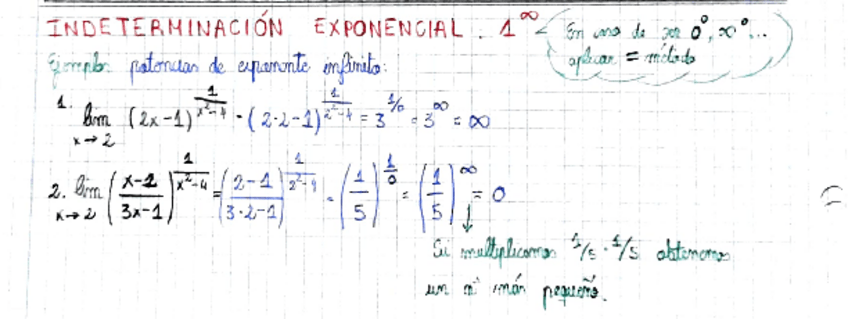 INDETERMINACIÓN EXPONENCIAL. 1^∞
En uno de 0⁰, ∞⁰,...
aplicar = método
Ejemplos potencias de exponente infinito:
1. lim x→2 (2x-1)^(1/(x²-4)) = (2·2-1)^(1/(2²-4)) = 3^(1/0) = 3^∞ = ∞
2. lim x→2 ((x-1)/(3x-1))^(1/(x²-4)) = ((2-1)/(3·2-1))^(1/(2²-4)) = (1/5)^(1/0) = (1/5)^∞ = 0
Si multiplicamos 1/5 · 1/5 obtenemos
un nº más pequeño.